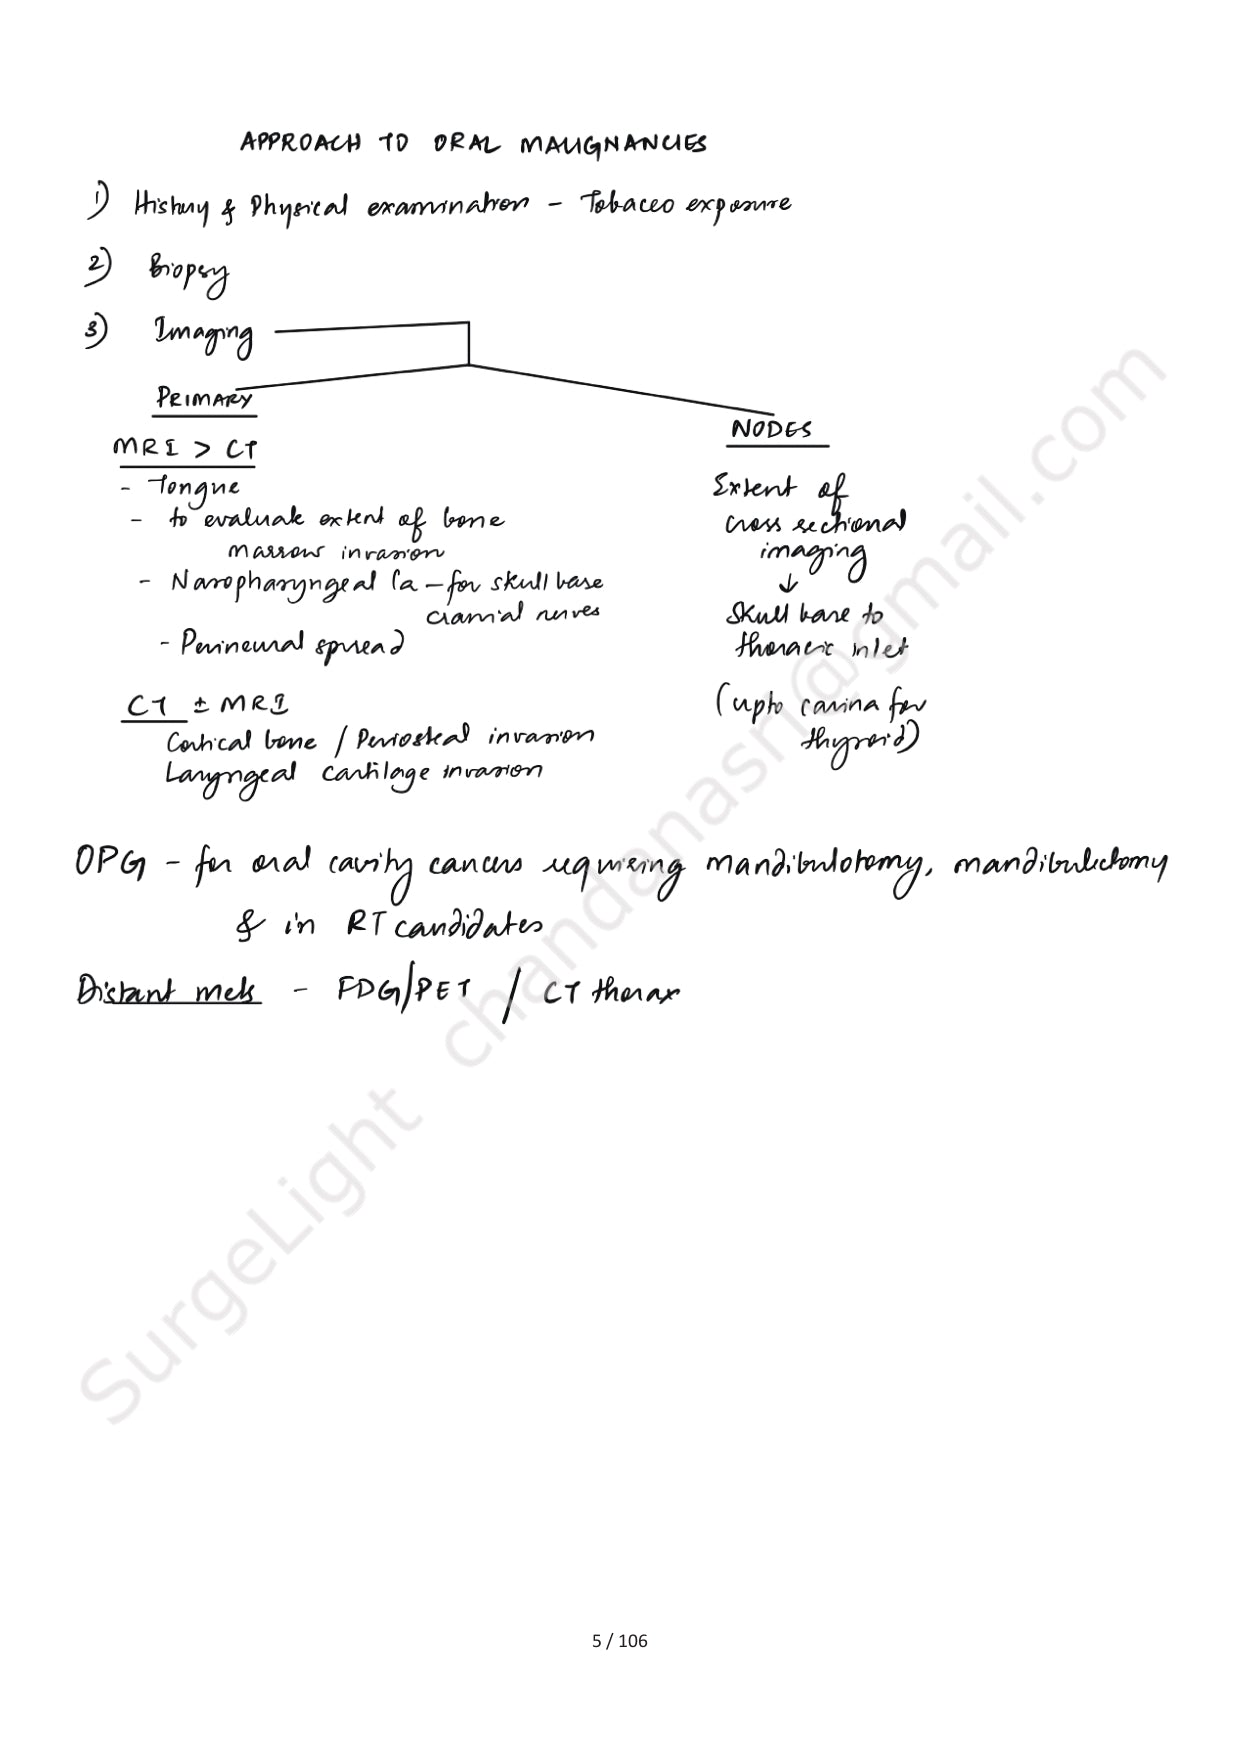 APPROACH TO ORAL MALIGNANCIES
1) History & Physical examination - Tobacco exposure
2) Biopsy
3) Imaging
PRIMARY
MRI > CT
- Tongue
- to evaluate extent of bone
marrow invasion
- Nasopharyngeal Ca - for skull base
cranial nerves
- Perineural spread
CT ± MRI
Cortical bone / Periosteal invasion
Laryngeal cartilage invasion
NODES
Extent of
cross sectional
imaging
↓
Skull base to
thoracic inlet
(upto carina for
thyroid)
OPG - for oral cavity cancers requiring mandibulotomy, mandibulectomy
& in RT candidates
Distant mets - FDG/PET / CT thorax
SurgeLight chandanasri@gmail.com
5 / 106